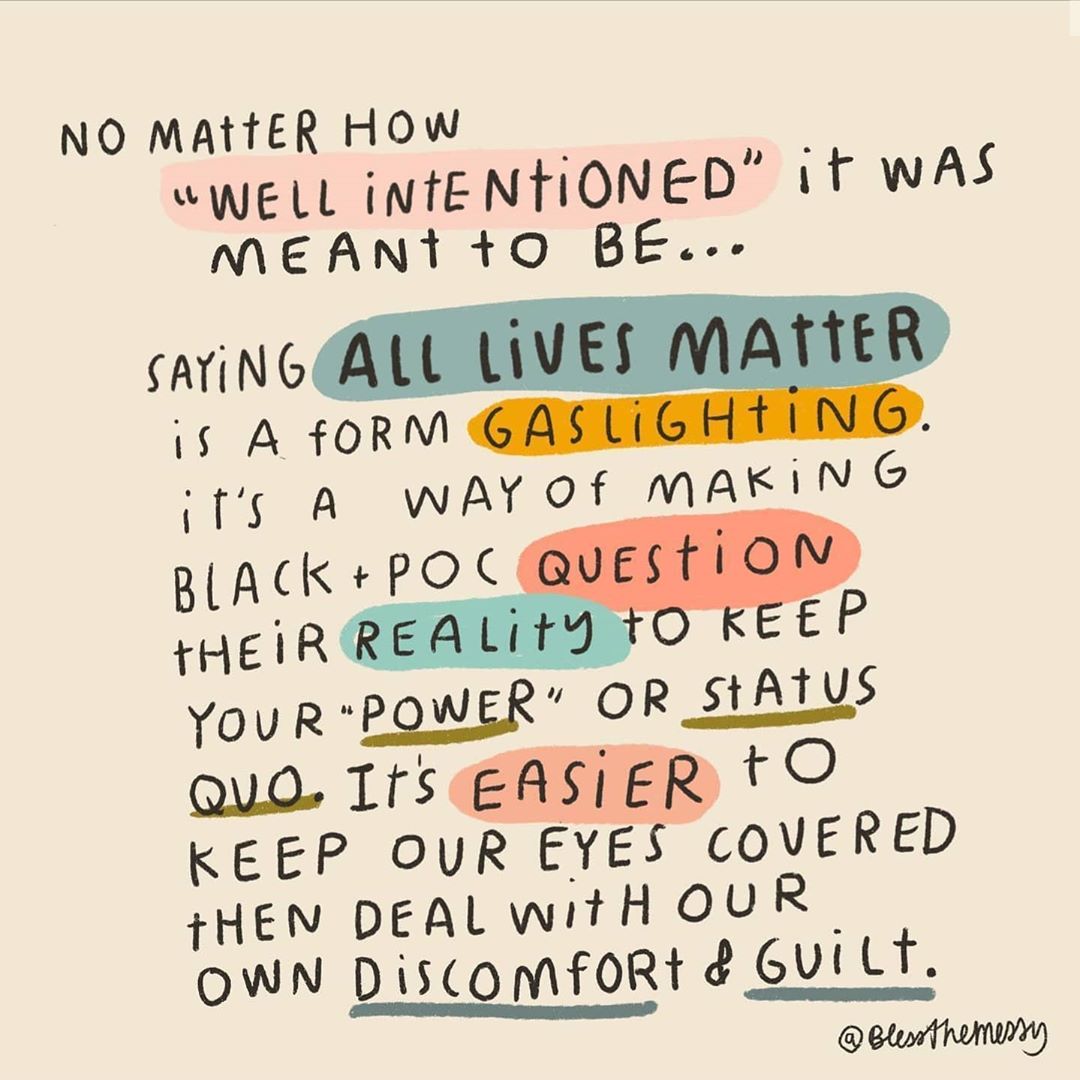 NO MATTER HOW
"WELL INTENTIONED" IT WAS
MEANT TO BE...
SAYING ALL LIVES MATTER
IS A FORM GASLIGHTING.
IT'S A WAY OF MAKING
BLACK + POC QUESTION
THEIR REALITY TO KEEP
YOUR "POWER" OR STATUS
QUO. IT'S EASIER TO
KEEP OUR EYES COVERED
THEN DEAL WITH OUR
OWN DISCOMFORT & GUILT.
@Blessthemessy